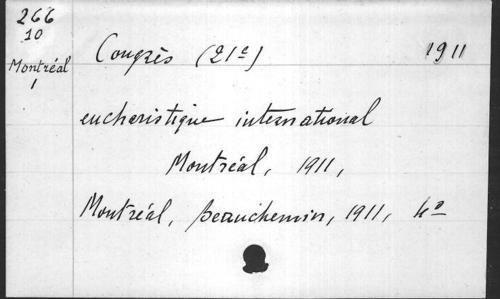 266
10
Montréal
1
Congrès (21e) 1911
eucharistique international
Montréal, 1911,
Montréal, Beauchemin, 1911, 4°